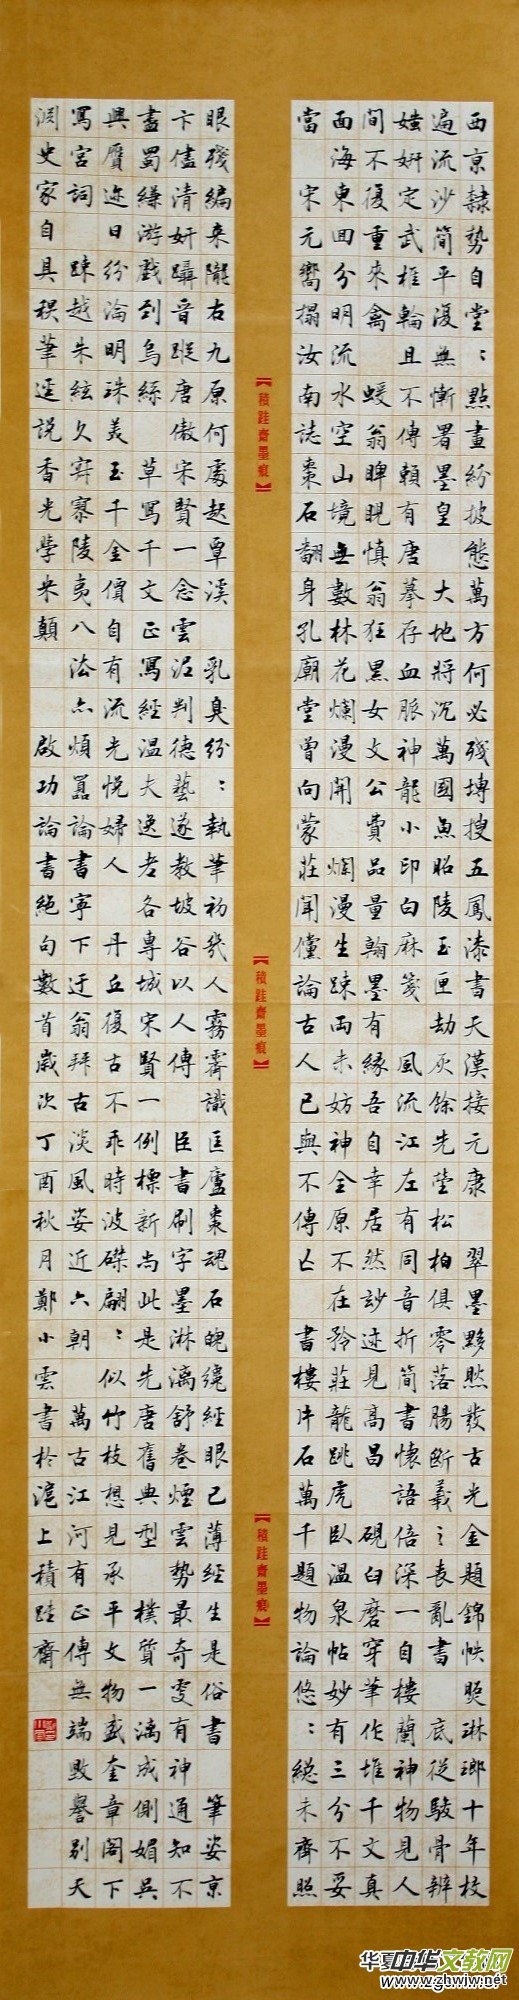 西京隸勢自堂〻點畫紛披態萬方何必殘塼搜五鳳漆書天漢接元康 翠墨黟然發古光金題錦帙照琳瑯十年校
遍流沙簡平復無慚署墨皇 大地將沉萬國魚昭陵玉匣劫灰餘先塋松柏俱零落腸斷羲〻喪亂書 底從駿骨辨
媸妍定武椎輪且不傳賴有唐摹存血脈神龍小印白麻箋 風流江左有同音折簡書懷語倍深一自樓蘭神物見人
間不復重來禽 蝯翁睥睨慎翁狂黑女文公費品量翰墨有緣吾自幸居然妙迹見高昌 硯臼磨穿筆作堆千文真
面海東回分明流水空山境無數林花爛漫開 爛漫生疎兩未妨神全原不在矜莊龍跳虎臥溫泉帖妙有三分不妥
當 宋元嚮搨汝南誌棗石翻身孔廟堂曾向蒙莊聞儻論古人已與不傳亡 書樓片石萬千題物論悠〻總未齊照
【積跬齋墨痕】
【積跬齋墨痕】
【積跬齋墨痕】
眼殘編來隴右九原何處起覃溪 乳臭紛〻執筆初幾人霧霽識匡廬棗魂石魄纔經眼已薄經生是俗書 筆姿京
卞儘清妍躡晉蹤唐傲宋賢一念雲泥判德藝遂教坡谷以人傳 臣書刷字墨淋漓舒卷煙雲勢最奇更有神通知不
盡蜀縑游戲到烏絲 草寫千文正寫經溫夫逸老各專城宋賢一例標新尚此是先唐舊典型 樸質一漓成側媚吳
興贋迹日紛淪明珠美玉千金價自有流光悅婦人 丹丘復古不乖時波磔翩〻似竹枝想見承平文物盛奎章閣下
寫宮詞 疎越朱絃久寂寥陵夷八法亦煩囂論書寧下迂翁拜古淡風姿近六朝 萬古江河有正傳無端毀譽別天
淵史家自具秋筆逕說香光學米顛 啟功論書絕句數首歲次丁酉秋月鄭小雲書於滬上積跬齋
华夏中华文教网
www.zhwjw.net